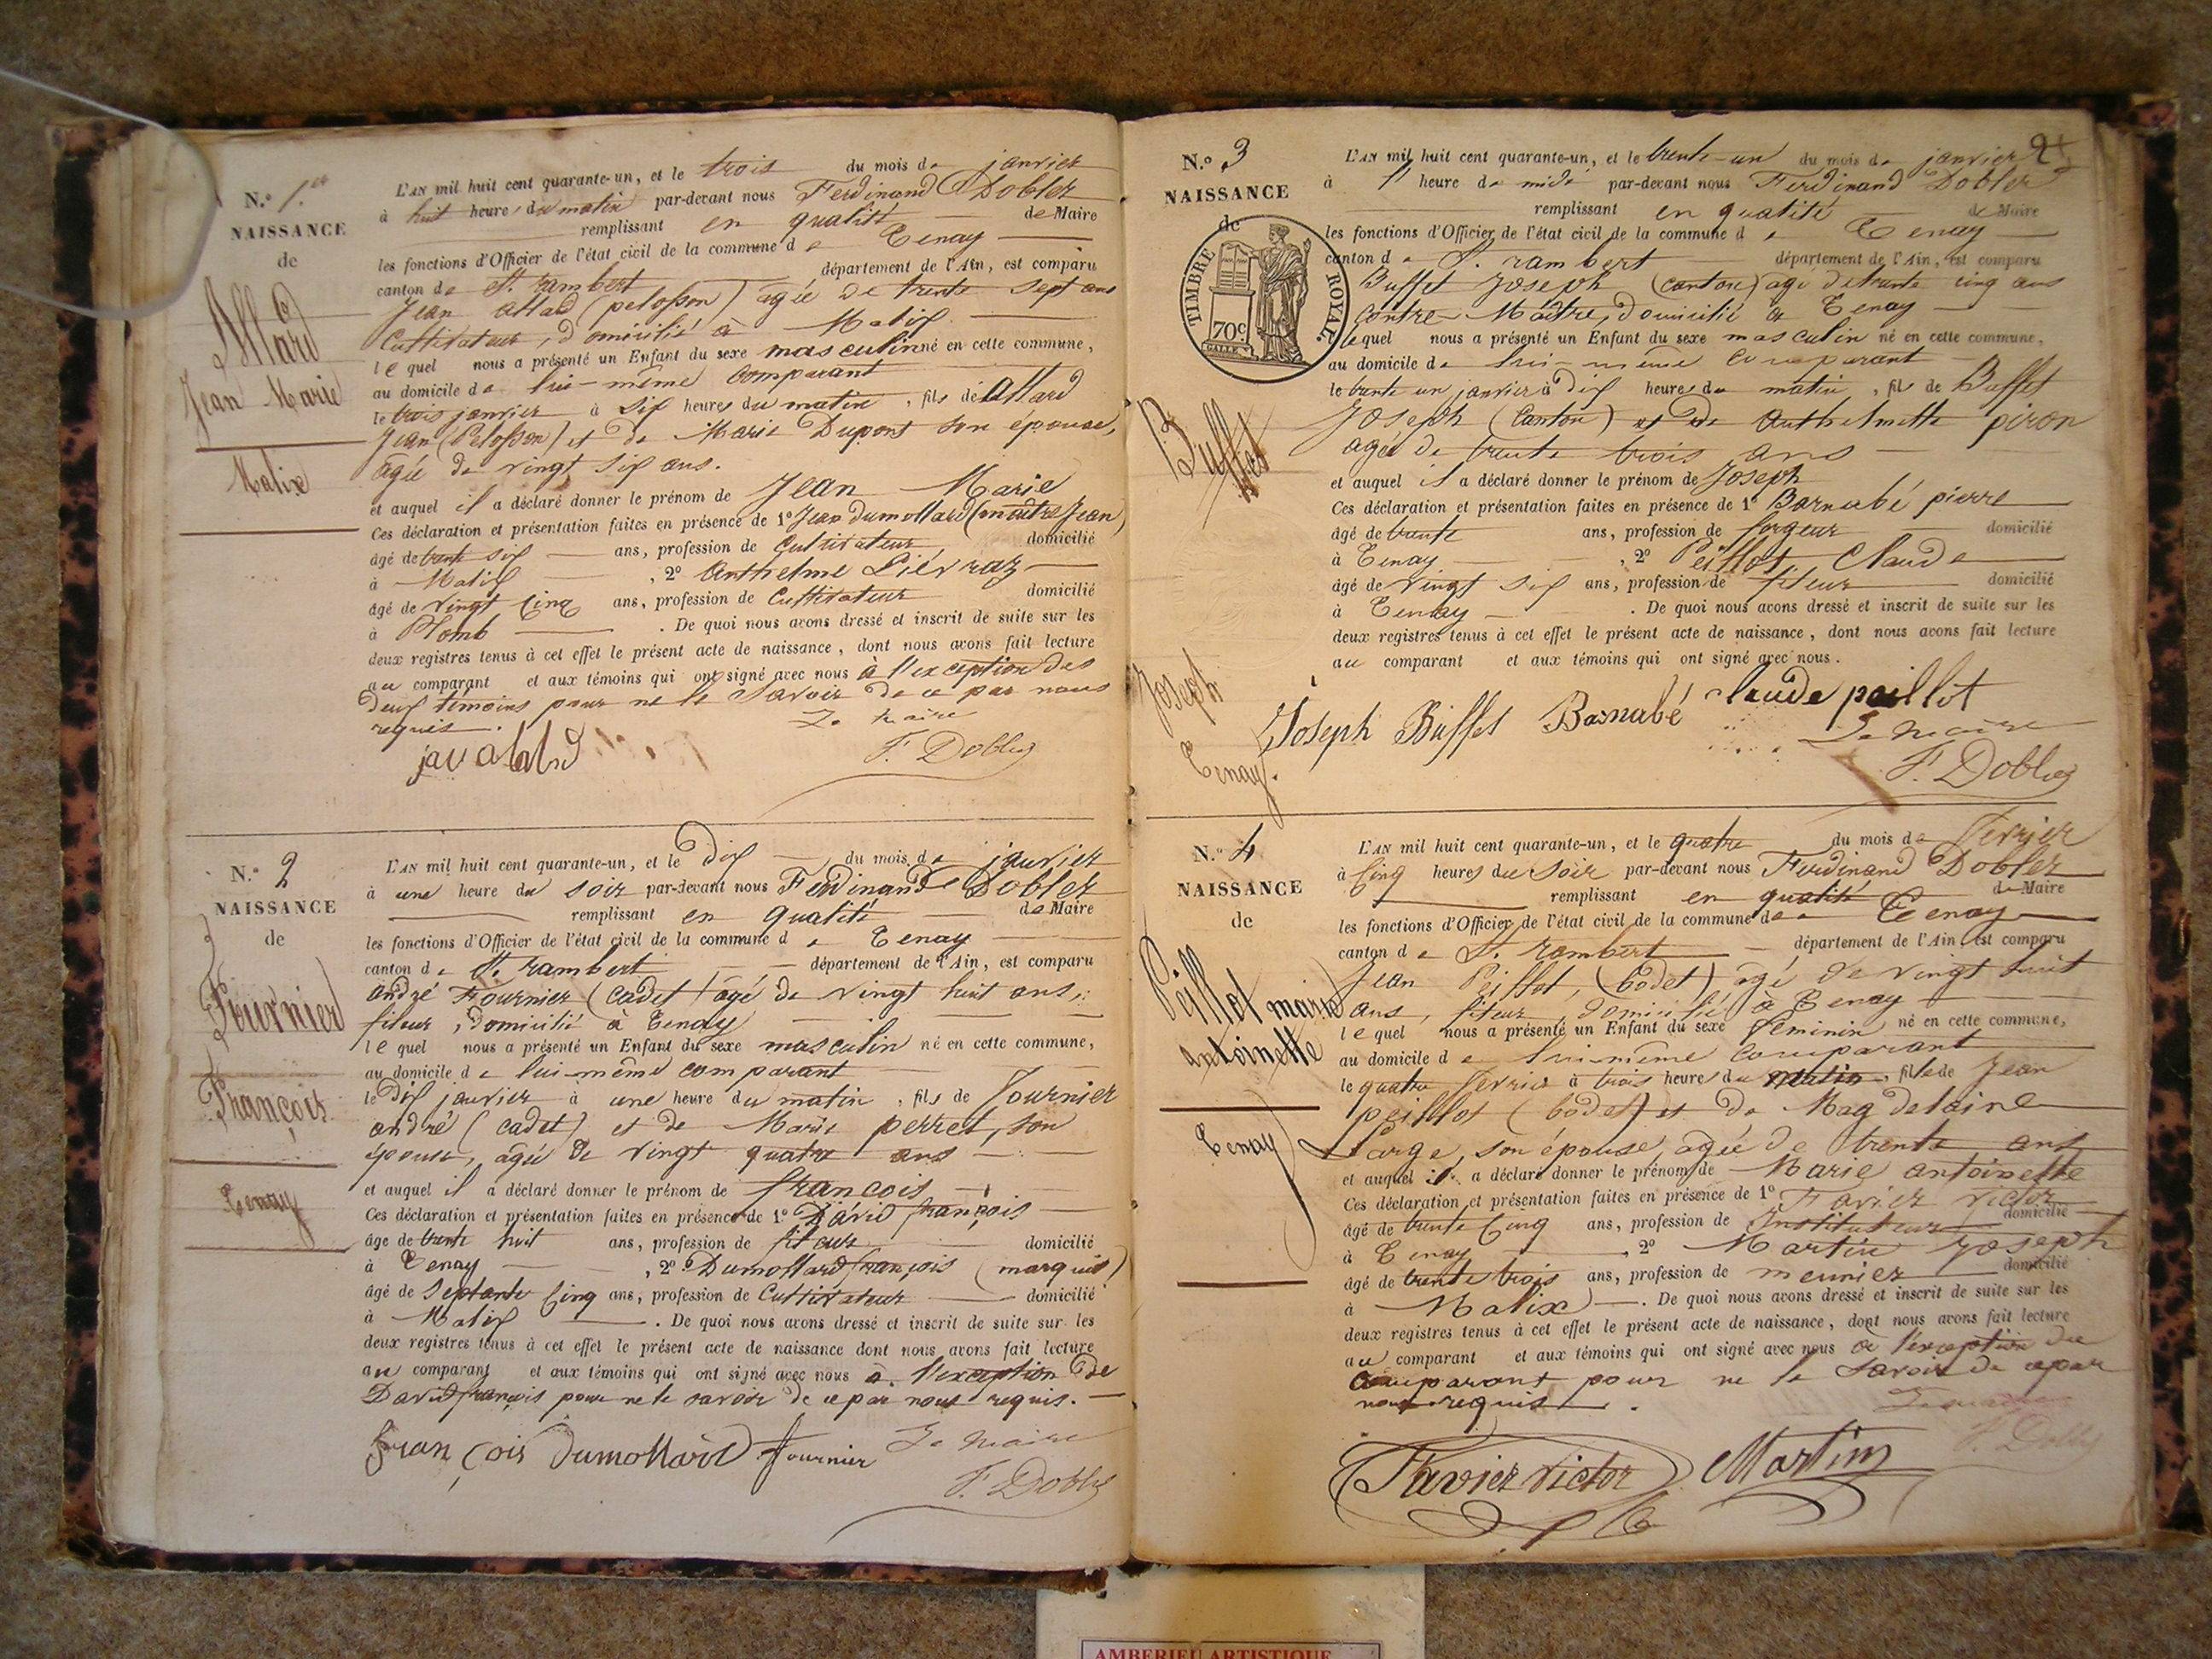 N.° 1.er
NAISSANCE
de
Allard
Jean Marie
Malix
L'AN mil huit cent quarante-un, et le trois du mois de janvier
à huit heure du matin par-devant nous Ferdinand Dobler
remplissant en qualité de Maire
les fonctions d'Officier de l'état civil de la commune de Tenay
canton de St. rambert département de l'Ain, est comparu
Jean allad (pelosson) agée de trente sept ans
Cultivateur, domicilié à Malix
lequel nous a présenté un Enfant du sexe masculin né en cette commune,
au domicile de lui-même comparant
le trois janvier à six heures du matin, fils de allard
Jean (Pelosson) et de Marie Dupont son épouse,
agée de vingt six ans.
et auquel il a déclaré donner le prénom de Jean Marie
Ces déclaration et présentation faites en présence de 1° Jean dumollard (maître Jean)
âgé de trente six ans, profession de Cultivateur domicilié
à Malix, 2° Anthelme Liévraz
âgé de vingt cinq ans, profession de Cultivateur domicilié
à Plomb. De quoi nous avons dressé et inscrit de suite sur les
deux registres tenus à cet effet le présent acte de naissance, dont nous avons fait lecture
au comparant et aux témoins qui ont signé avec nous à l'exception des
deux témoins pour ne le savoir de ce par nous
requis.
Le maire
F. Dobler
N.° 2
NAISSANCE
de
Fournier
François
Tenay
L'AN mil huit cent quarante-un, et le dix du mois de janvier
à une heure du soir par-devant nous Ferdinand Dobler
remplissant en qualité de Maire
les fonctions d'Officier de l'état civil de la commune de Tenay
canton de St. rambert département de l'Ain, est comparu
andré Fournier (cadet) âgé de vingt huit ans,
fileur, domicilié à Tenay
lequel nous a présenté un Enfant du sexe masculin né en cette commune,
au domicile de lui-même comparant
le dix janvier à une heure du matin, fils de Fournier
andré (cadet) et de Marie perret, son
épouse, agée de vingt quatre ans
et auquel il a déclaré donner le prénom de françois
Ces déclaration et présentation faites en présence de 1° David françois
âgé de trente huit ans, profession de fileur domicilié
à Tenay, 2° Dumollard françois (marquis)
âgé de septante cinq ans, profession de Cultivateur domicilié
à Malix. De quoi nous avons dressé et inscrit de suite sur les
deux registres tenus à cet effet le présent acte de naissance dont nous avons fait lecture
au comparant et aux témoins qui ont signé avec nous à l'exception de
David françois pour ne le savoir de ce par nous requis.
françois dumollard fournier Le maire
F. Dobler
2
N.° 3
NAISSANCE
de
TIMBRE ROYAL
70c.
Buffet
Joseph
Tenay.
L'AN mil huit cent quarante-un, et le trente-un du mois de janvier
à 1' heure de midi par-devant nous Ferdinand Dobler
remplissant en qualité de Maire
les fonctions d'Officier de l'état civil de la commune de Tenay
canton de St. rambert département de l'Ain, est comparu
Buffet Joseph (canton) agé de trente cinq ans
contre-Maître, domicilié à Tenay
lequel nous a présenté un Enfant du sexe masculin né en cette commune,
au domicile de lui-même comparant
le trente un janvier à dix heures du matin, fils de Buffet
Joseph (Canton) et de Anthelmette piron
agée de trente trois ans
et auquel il a déclaré donner le prénom de Joseph
Ces déclaration et présentation faites en présence de 1° Barnabé pierre
âgé de trente ans, profession de forgeur domicilié
à Tenay, 2° Peillot Claude
âgé de vingt six ans, profession de fileur domicilié
à Tenay. De quoi nous avons dressé et inscrit de suite sur les
deux registres tenus à cet effet le présent acte de naissance, dont nous avons fait lecture
au comparant et aux témoins qui ont signé avec nous.
Joseph Buffet Barnabé claude peillot
Le maire
F. Dobler
N.° 4
NAISSANCE
de
Peillot marie
antoinette
Tenay
L'AN mil huit cent quarante-un, et le quatre du mois de Fevrier
à cinq heures du soir par-devant nous Ferdinand Dobler
remplissant en qualité de Maire
les fonctions d'Officier de l'état civil de la commune de Tenay
canton de St. rambert département de l'Ain, est comparu
Jean Peillot, (bodet) agé de vingt huit
ans, fileur, domicilié à Tenay
lequel nous a présenté un Enfant du sexe féminin né en cette commune,
au domicile de lui-même comparant
le quatre fevrier à trois heures du matin, fille de Jean
peillot (bodet) et de Magdelaine
Large, son épouse, agée de trente ans
et auquel il a déclaré donner le prénom de Marie antoinette
Ces déclaration et présentation faites en présence de 1° Favier victor
âgé de trente cinq ans, profession de Instituteur domicilié
à Tenay, 2° Martin Joseph
âgé de trente trois ans, profession de meunier domicilié
à Malix. De quoi nous avons dressé et inscrit de suite sur les
deux registres tenus à cet effet le présent acte de naissance, dont nous avons fait lecture
au comparant et aux témoins qui ont signé avec nous à l'exception du
comparant pour ne le savoir de ce par
nous requis.
Le maire
F. Dobler
Favier victor Martin
AMBERIEU ARTISTIQUE